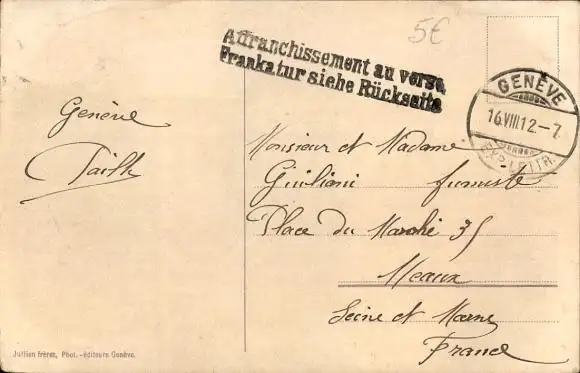 5€
Affranchissement au verso
Frankatur siehe Rückseite
GENÈVE
16.VIII.12-7
EXP. LETTR.
Genève
Monsieur et Madame
Giuliani fumiste
Place du Marché 35
Meaux
Seine et Marne
France
Jullien frères, Phot.-éditeurs Genève.